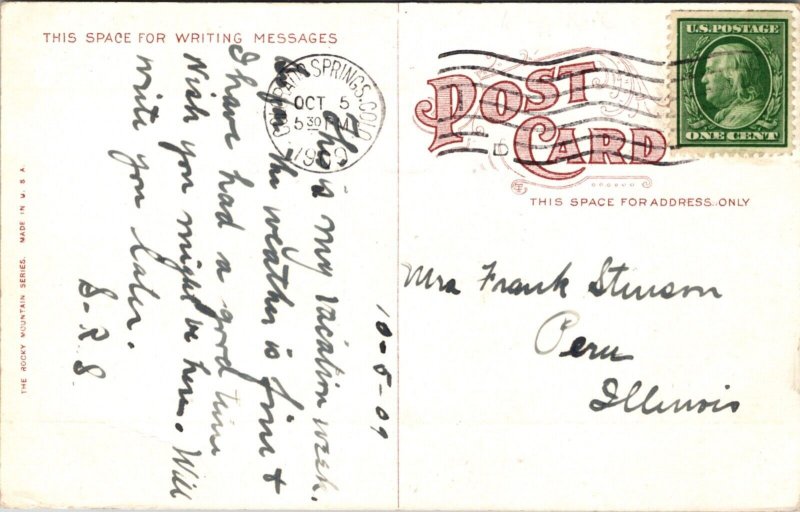 THIS SPACE FOR WRITING MESSAGES
10-5-09
This is my vacation week.
So far the weather is fine &
I have had a good time
Wish you might be here. Will
write you later.
S-R S.
THE ROCKY MOUNTAIN SERIES. MADE IN U.S.A.
COLORADO SPRINGS. COLO.
OCT 5
5 30 PM
1909
U.S. POSTAGE
ONE CENT
POST
CARD
THIS SPACE FOR ADDRESS ONLY
Mrs Frank Stinson
Peru
Illinois